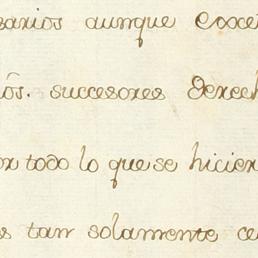 sarios aunque exce
ôs. succesores Derech
or todo lo que se hicier
s tan solamente ce